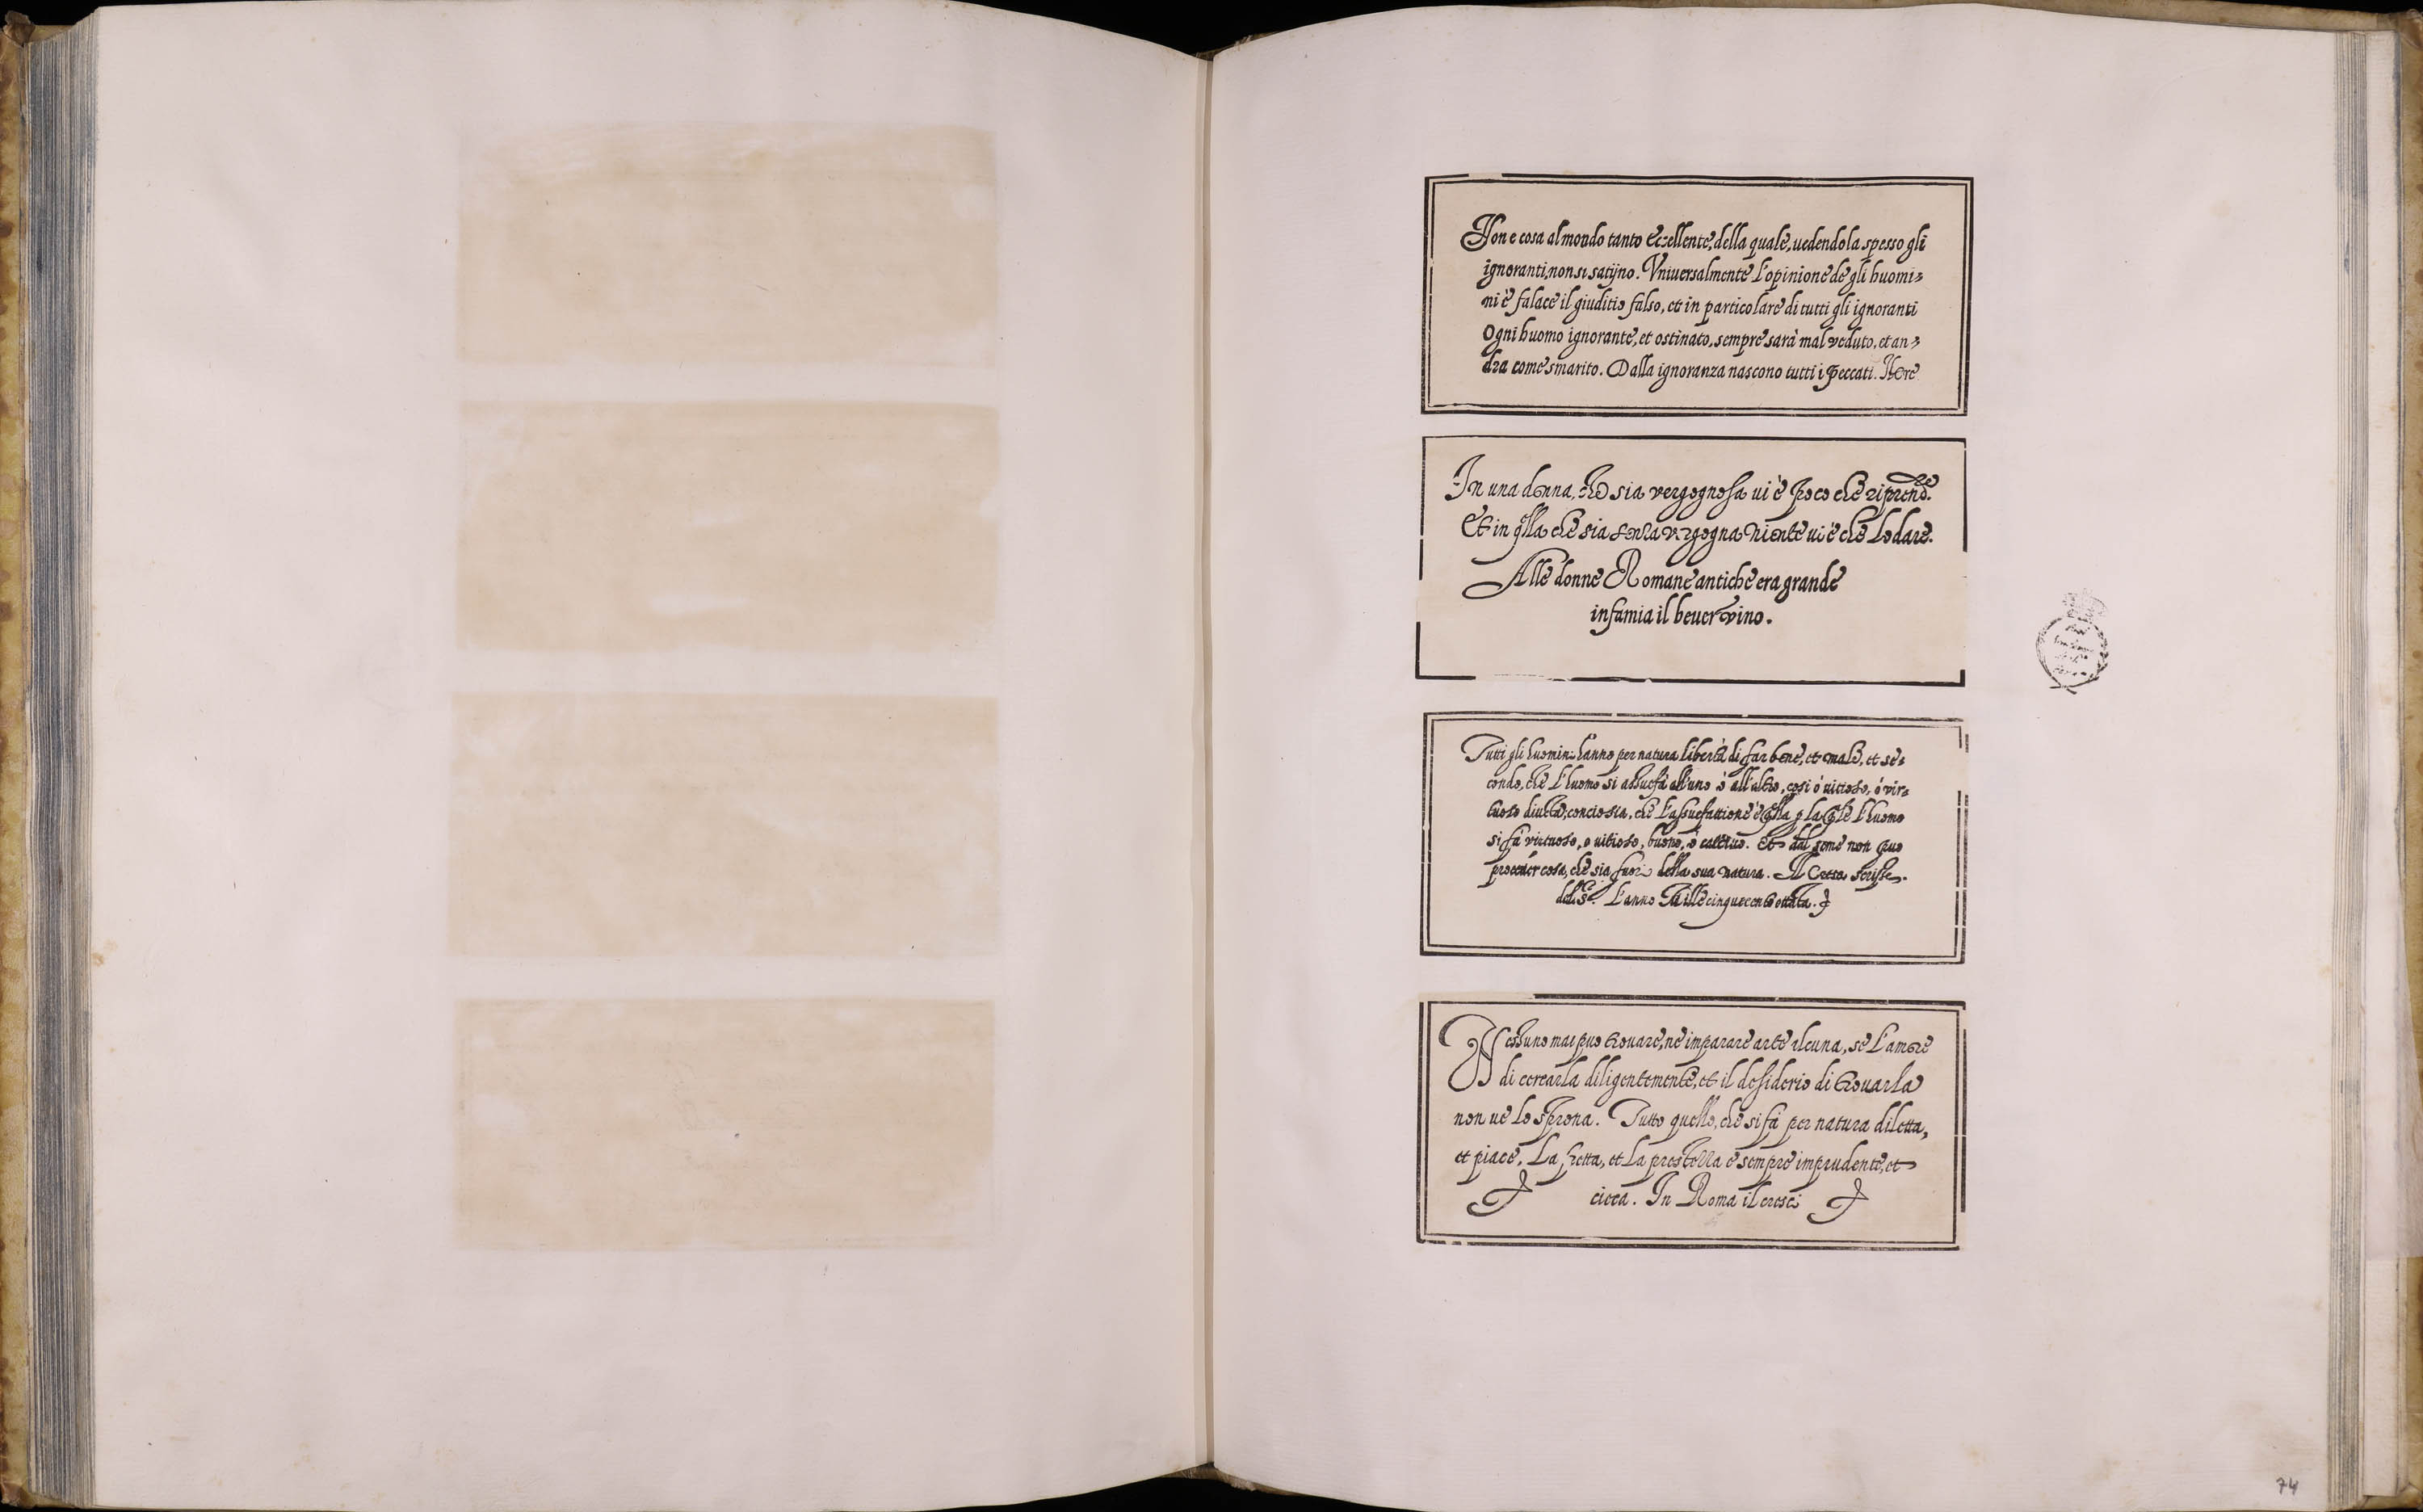 Non e cosa al mondo tanto eccellente, della quale, uedendola spesso gli
ignoranti, non si satijno. Vniuersalmente l'opinione de gli huomi-
ni è falace il giuditio falso, et in particolare di tutti gli ignoranti
Ogni huomo ignorante, et ostinato, sempre sarà mal veduto, et an-
dra come smarito. Dalla ignoranza nascono tutti i peccati. Il Cre
In una donna, che sia vergognosa ui è poco che riprende.
Et in qlla che sia senza vergogna niente ui è che lodare.
Alle donne Romane antiche era grande
infamia il beuer vino.
Tutti gli huomini hanno per natura libertà di far bene, et male, et se-
condo, che l'huomo si assuefà all'uno ò all'altro, cosi ò uitioso, ò vir-
tuoso diuenta, conciosia, che l'assuefattione è qlla p la qle l'huomo
si fà virtuoso, o uitioso, buono, ò cattiuo. Et dal seme non puo
proceder cosa, che sia fuori della sua natura. Il Cresci scriss.
L'anno Mille cinquecento ottāta.
Nessuno mai puo trouare, ne imparare arte alcuna, se l'amore
di cercarla diligentemente, et il desiderio di trouarla
non ue lo sprona. Tutto quello, che si fà per natura diletta,
et piace. La fretta, et la prestezza è sempre imprudente, et
cieca. In Roma il cresci
74